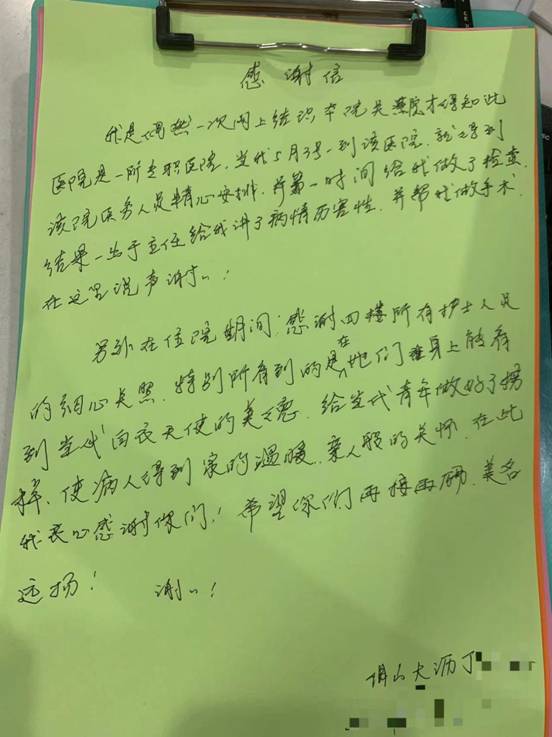 感谢信
我是偶然一次网上结识本院吴燕院才得知此
医院是一所专职医院，当我5月3号一到该医院，就得到
该院医务人员精心安排，并第一时间给我做了检查，
结果一出于主任给我讲了病情厉害性，并帮我做手术，
在这里说声谢〃！
另外在住院期间，感谢四楼所有护士人员
的细心关照，特别所看到的是在她们身上能看
到当代白衣天使的美德，给当代青年做好了榜
样，使病人得到家的温暖，亲人般的关怀，在此
我衷心感谢你们！希望你们再接再励，美名
远扬！ 谢〃！
佛山大沥丁